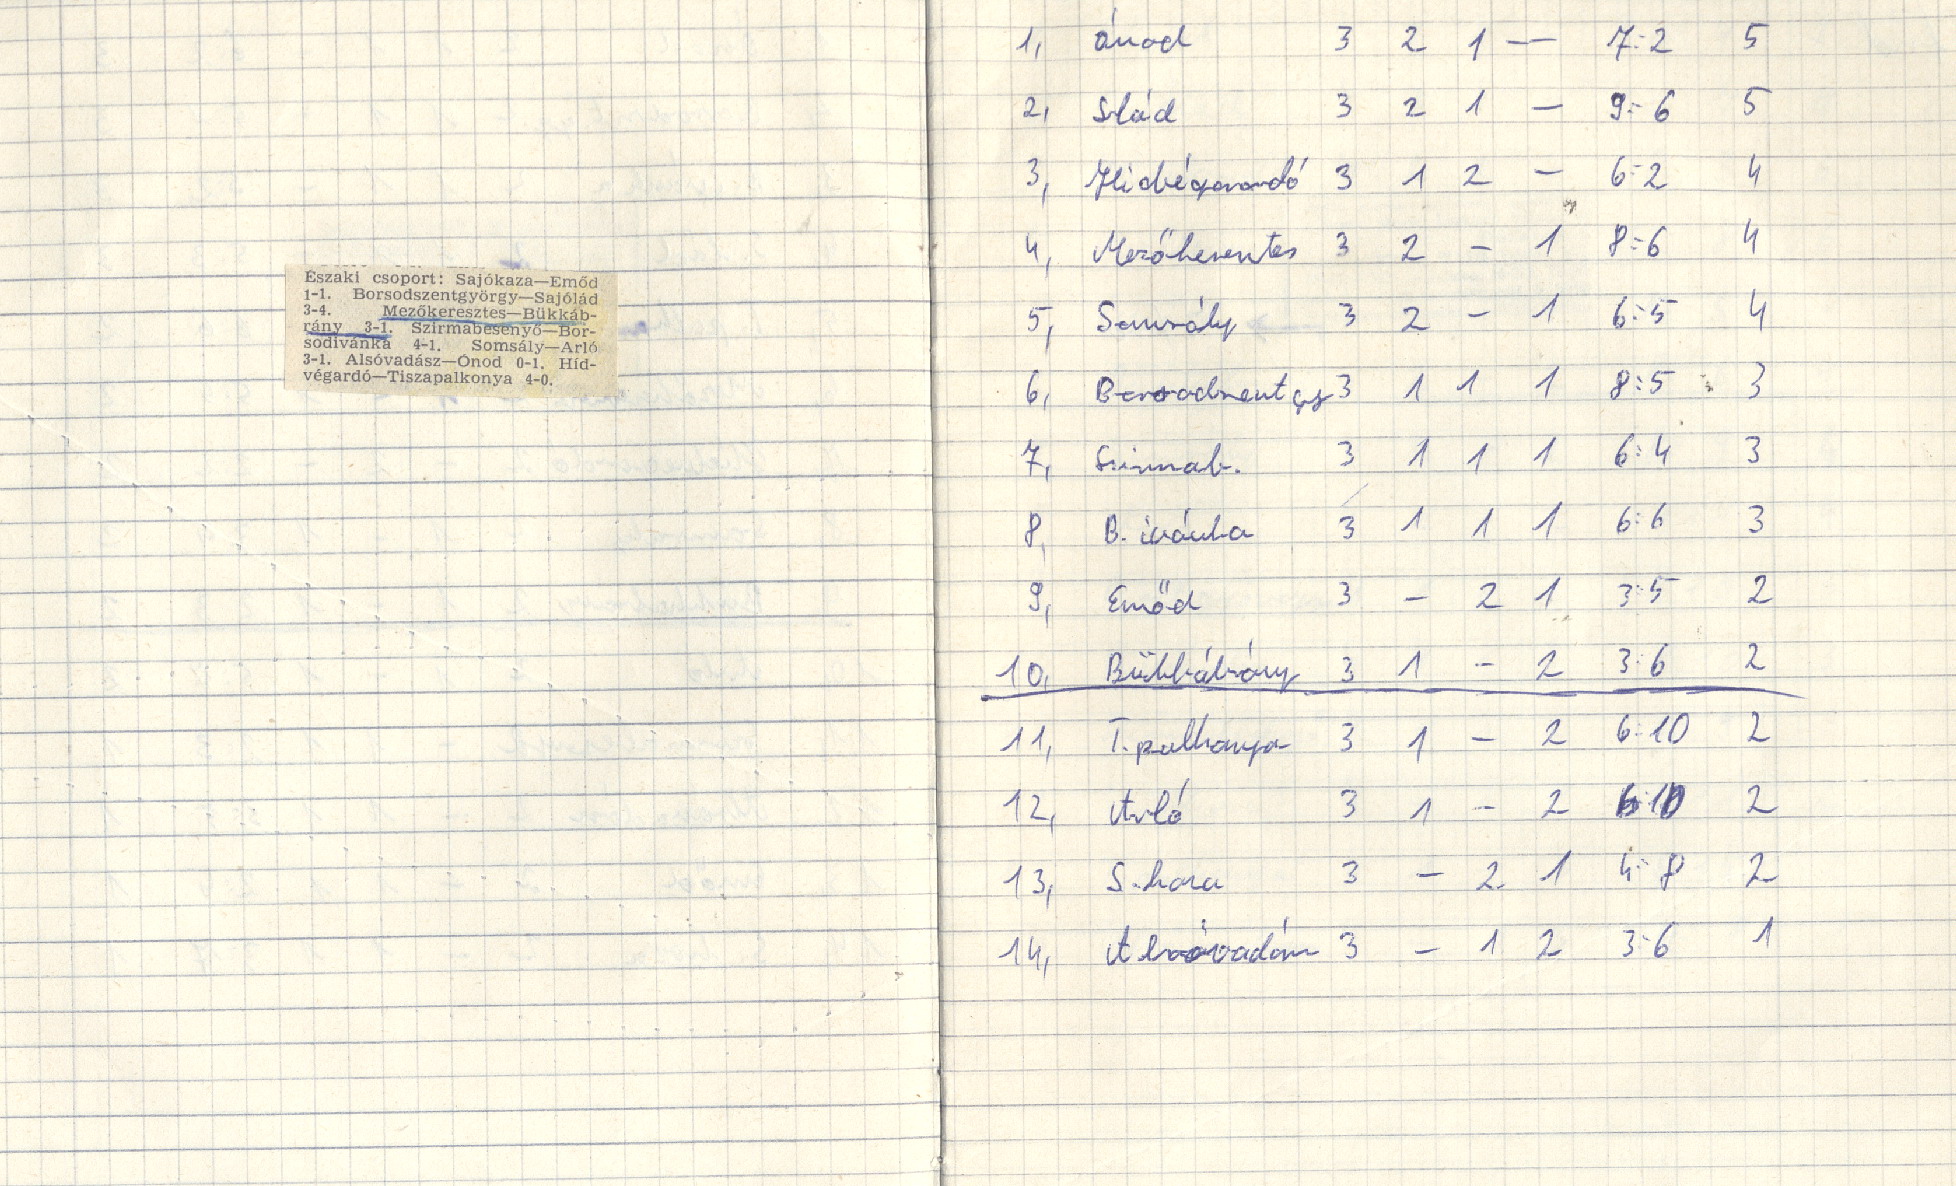 Északi csoport: Sajókaza—Emőd
1-1. Borsodszentgyörgy—Sajólád
3-4. Mezőkeresztes—Bükkáb-
rány 3-1. Szirmabesenyő—Bor-
sodivánka 4-1. Somsály—Arló
3-1. Alsóvadász—Ónod 0-1. Híd-
végardó—Tiszapalkonya 4-0.
1, Ónod 3 2 1 — 7:2 5
2, S.lád 3 2 1 — 9:6 5
3, Hidvégardó 3 1 2 — 6:2 4
4, Mezőkeresztes 3 2 - 1 8:6 4
5, Somsály 3 2 - 1 6:5 4
6, Borsodszentgy 3 1 1 1 8:5 3
7, Szirmab. 3 1 1 1 6:4 3
8, B. ivánka 3 1 1 1 6:6 3
9, Emőd 3 — 2 1 3:5 2
10, Bükkábrány 3 1 - 2 3:6 2
11, T.palkonya 3 1 - 2 6:10 2
12, Arló 3 1 - 2 6:10 2
13, S.kaza 3 — 2 1 4:8 2
14, Alsóvadász 3 — 1 2 3:6 1